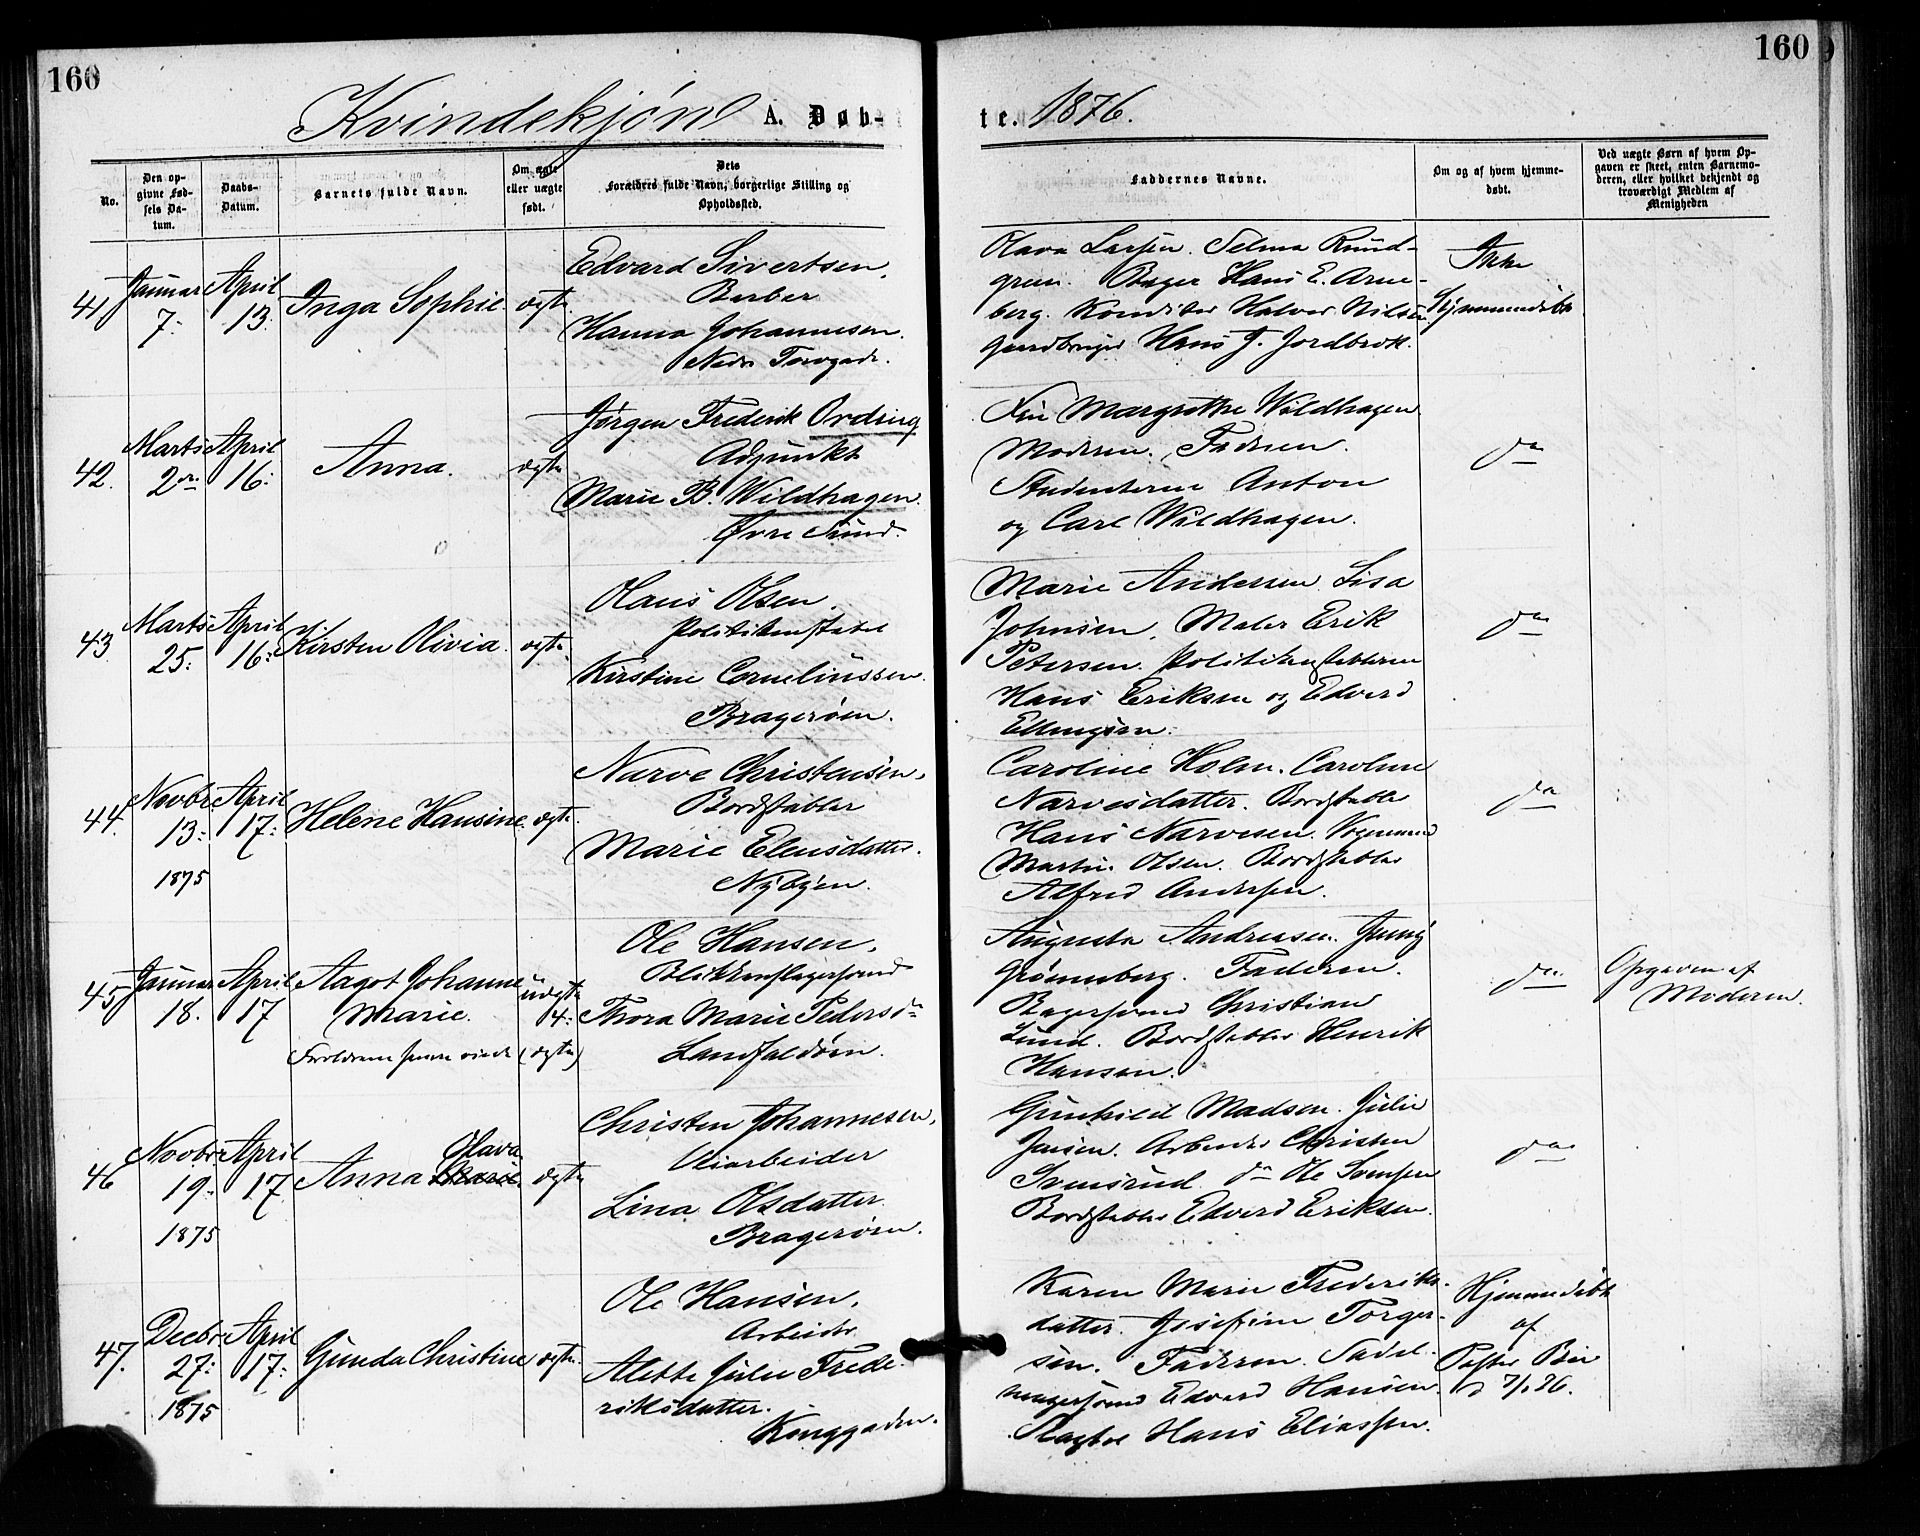 160
160
Kvindekjøn A. Døb-
te. 1876.
No.
Den op-
givne Fød-
sels Da-
tum.
Daabs-
Datum.
Barnets fulde Navn.
Om ægte
eller uægte
født.
Dets
Forældres fulde Navn, borgerlige Stilling og
Opholdssted.
Faddernes Navne.
Om og af hvem hjemme-
døbt.
Ved uægte Børn af hvem Op-
gaven er skeet, enten Barnemo-
deren, eller hvilket bekjendt og
troværdigt Medlem af
Menigheden
41
Januar
7.
April
13.
Inga Sophie.
ægte.
Edvard Sivertsen,
Barber
Hanna Johannesen.
Nedre Torvgade.
Olava Larsen. Selma Rund-
green. Bager Hans E. Arne-
berg. Konditor Halvor Nilsen
Gaardbruger Hans J. Jordbræk.
Ikke
Hjemmedøbt
42.
Marts
2den
April
16.
Anna.
ægte
Jørgen Frederik Ording
Adjunkt
Marie B. Wildhagen.
Øvre Sund.
Frk Margrethe Wildhagen
Moderen. Faderen.
Studenterne Anton
og Carl Wildhagen.
do
43.
Marts
25.
April
16.
Kirsten Olivia.
ægte.
Olaus Olsen.
Politikonstabel
Kirstine Corneliussen.
Bragerøen.
Marie Andersen. Lisa
Johnsen. Maler Erik
Petersen. Politikonstablerne
Hans Eriksen og Edvard
Ellingsen.
do
44.
Novbr.
13.
1875
April
17.
Helene Hansine.
ægte.
Narve Christensen,
Bordstabler
Marie Elensdatter.
Nybyen.
Caroline Holm. Caroline
Narvesdatter. Bordstabler
Hans Narvesen. Vognmand
Martin Olsen. Bordstabler
Alfred Andersen.
do
45
Januar
18.
April
17
Aagot Johanne
Marie.
Forældrene senere viede (ægte)
uægte
4.
Ole Hansen,
Blikkenslagersvend
Thora Marie Pedersdr
Landfaldøen.
Augusta Andreasen. Jenny
Grønneberg. Faderen.
Bagersvend Christian
Lund. Bordstabler Henrik
Hansen.
do
Opgaven af
Moderen.
46
Novbr.
19.
1875
April
17.
Olava
Anna Marie.
ægte
Christen Johannesen,
Veiarbeider
Lina Olsdatter.
Bragerøen.
Gunhild Madsen. Julie
Jensen. Arbeider Christen
Svensrud. do Ole Svensen
Bordstabler Edvard Eriksen.
do
47.
Decbr.
27.
1875
April
17.
Gunda Christine
ægte.
Ole Hansen,
Arbeider
Alette Julie Frede-
riksdatter.
Konggaden.
Karen Marie Frederiks-
datter. Josefine Torger-
sen. Faderen. Sadel-
magersvend Edvard Hansen.
Hans Eliassen.
Hjemmedøbt
af